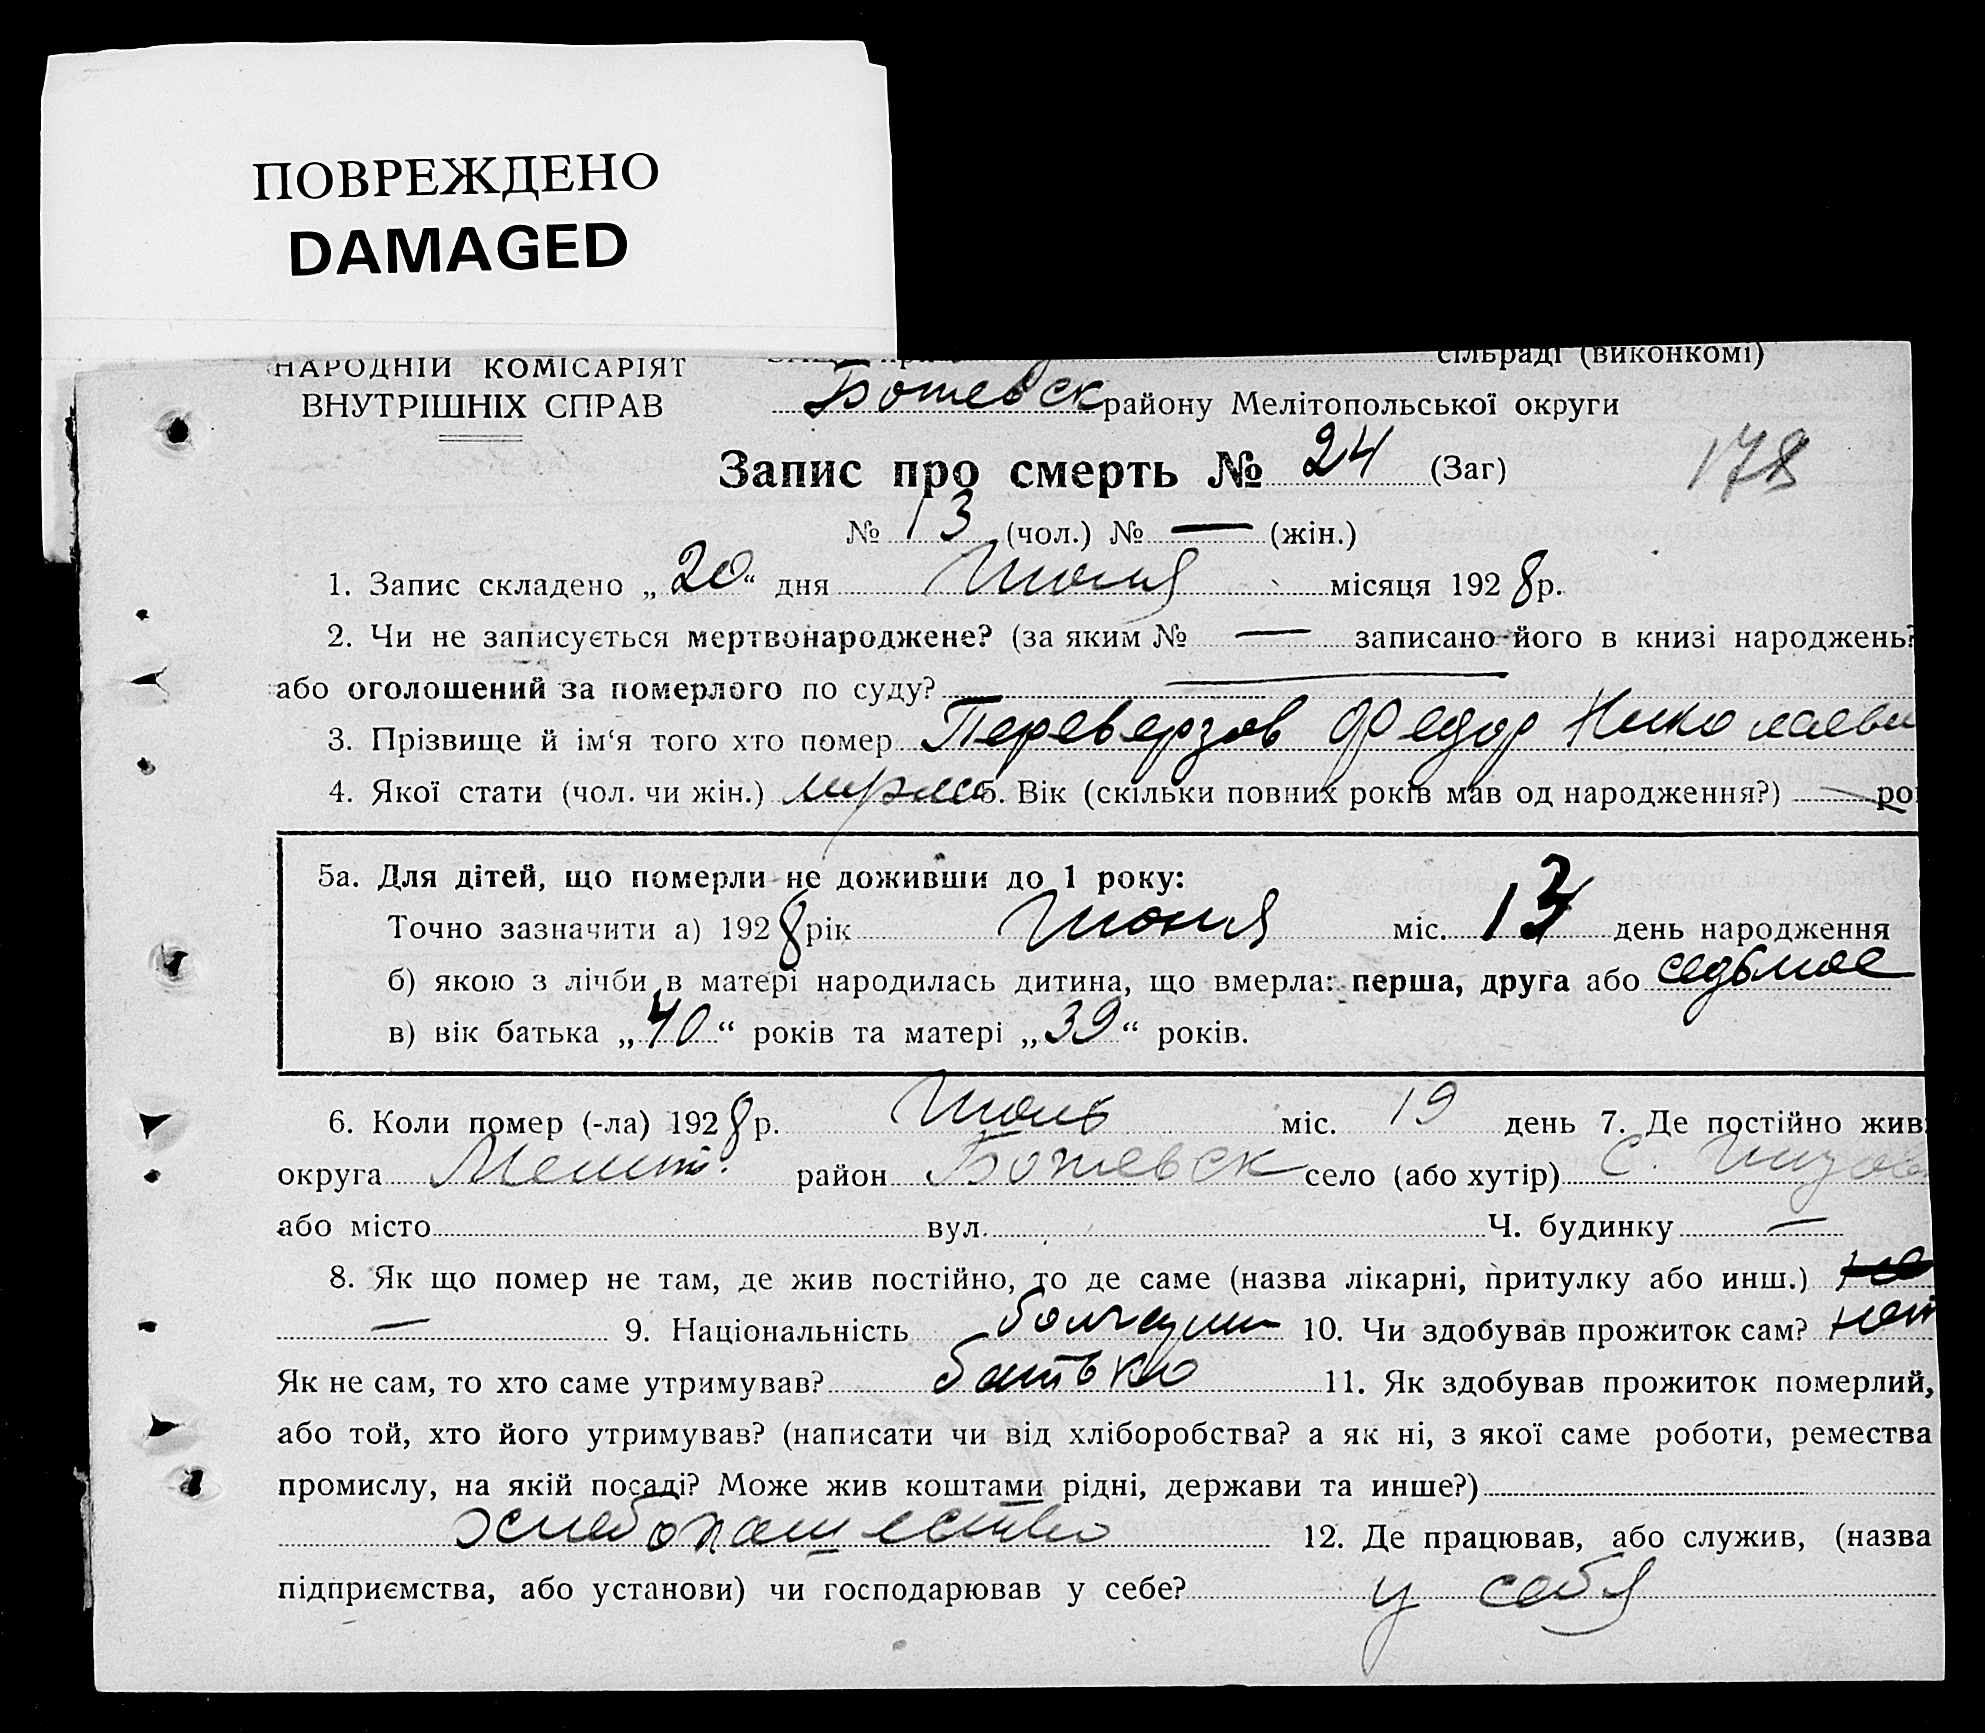 ПОВРЕЖДЕНО
DAMAGED
НАРОДНІЙ КОМІСАРІЯТ
сільраді (виконкомі)
ВНУТРІШНІХ СПРАВ
Ботевск району Мелітопольської округи
Запис про смерть № 24 (Заг)
178
№ 13 (чол.) № — (жін.)
1. Запис складено „20“ дня Июля місяця 1928 р.
2. Чи не записується мертвонароджене? (за яким № — записано його в книзі народжень?
або оголошений за померлого по суду? —
3. Прізвище й ім‘я того хто помер Переверзов Федор Николаеви
4. Якої стати (чол. чи жін.) 5. Вік (скільки повних років мав од народження?) — ро
5а. Для дітей, що померли не доживши до 1 року:
Точно зазначити а) 1928 рік Июня міс. 13 день народження
б) якою з лічби в матері народилась дитина, що вмерла: перша, друга або седьмое
в) вік батька „40“ років та матері „39“ років.
6. Коли помер (-ла) 1928 р. Июль міс. 19 день 7. Де постійно жив
округа Мелит. район Ботевск село (або хутір) С.
або місто вул. Ч. будинку —
8. Як що помер не там, де жив постійно, то де саме (назва лікарні, притулку або инш.)
— 9. Національність болгарин 10. Чи здобував прожиток сам? нет
Як не сам, то хто саме утримував? батько 11. Як здобував прожиток померлий,
або той, хто його утримував? (написати чи від хліборобства? а як ні, з якої саме роботи, ремества
промислу, на якій посаді? Може жив коштами рідні, держави та инше?)
хлебопашество 12. Де працював, або служив, (назва
підприємства, або установи) чи господарював у себе? у себя